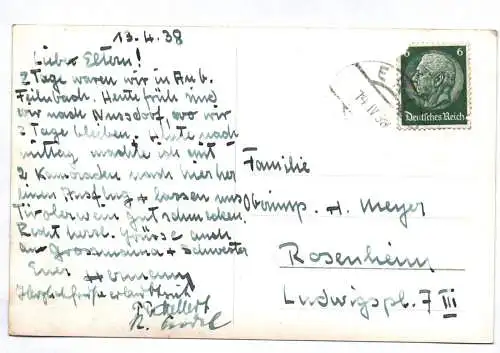 13.4.38
Lieber Eltern!
2 Tage waren wir in Au b.
Feilnbach. Heute früh sind
wir nach Nussdorf, wo wir
3 Tage bleiben. Heute nach
mittag machte ich mit
2 Kameraden nach hierher
einen Ausflug + lassen uns
Tirolerwein gut schmecken.
Recht herzl. Grüsse auch
an Grossmama + Schwester
Euer Hermann
6
Deutsches Reich
14 IV 38
Familie
Oberinsp. H. Meyer
Rosenheim
Ludwigspl. 7 III